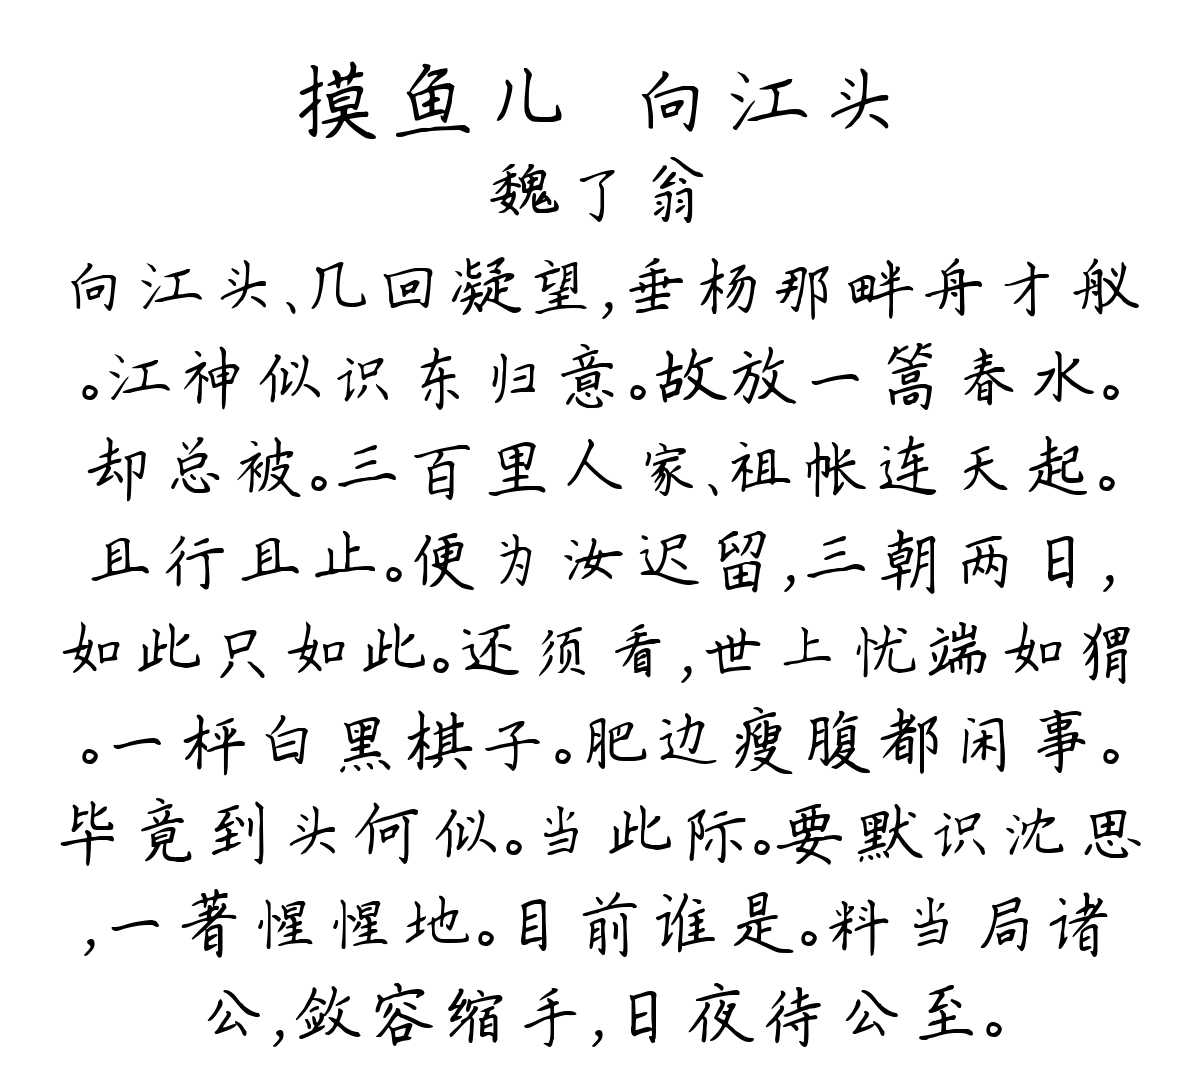 摸鱼儿 向江头
魏了翁
向江头、几回凝望,垂杨那畔舟才舣
。江神似识东归意。故放一篙春水。
却总被。三百里人家、祖帐连天起。
且行且止。便为汝迟留,三朝两日,
如此只如此。还须看,世上忧端如猬
。一枰白黑棋子。肥边瘦腹都闲事。
毕竟到头何似。当此际。要默识沈思
,一著惺惺地。目前谁是。料当局诸
公,敛容缩手,日夜待公至。